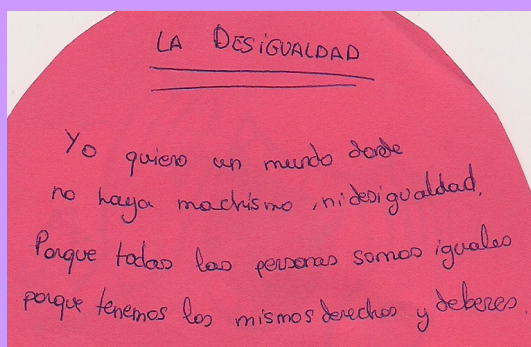 LA DESiGUALDAD
Yo quiero un mundo donde
no haya machismo, ni desigualdad.
Porque todas las personas somos iguales
porque tenemos los mismos derechos y deberes.